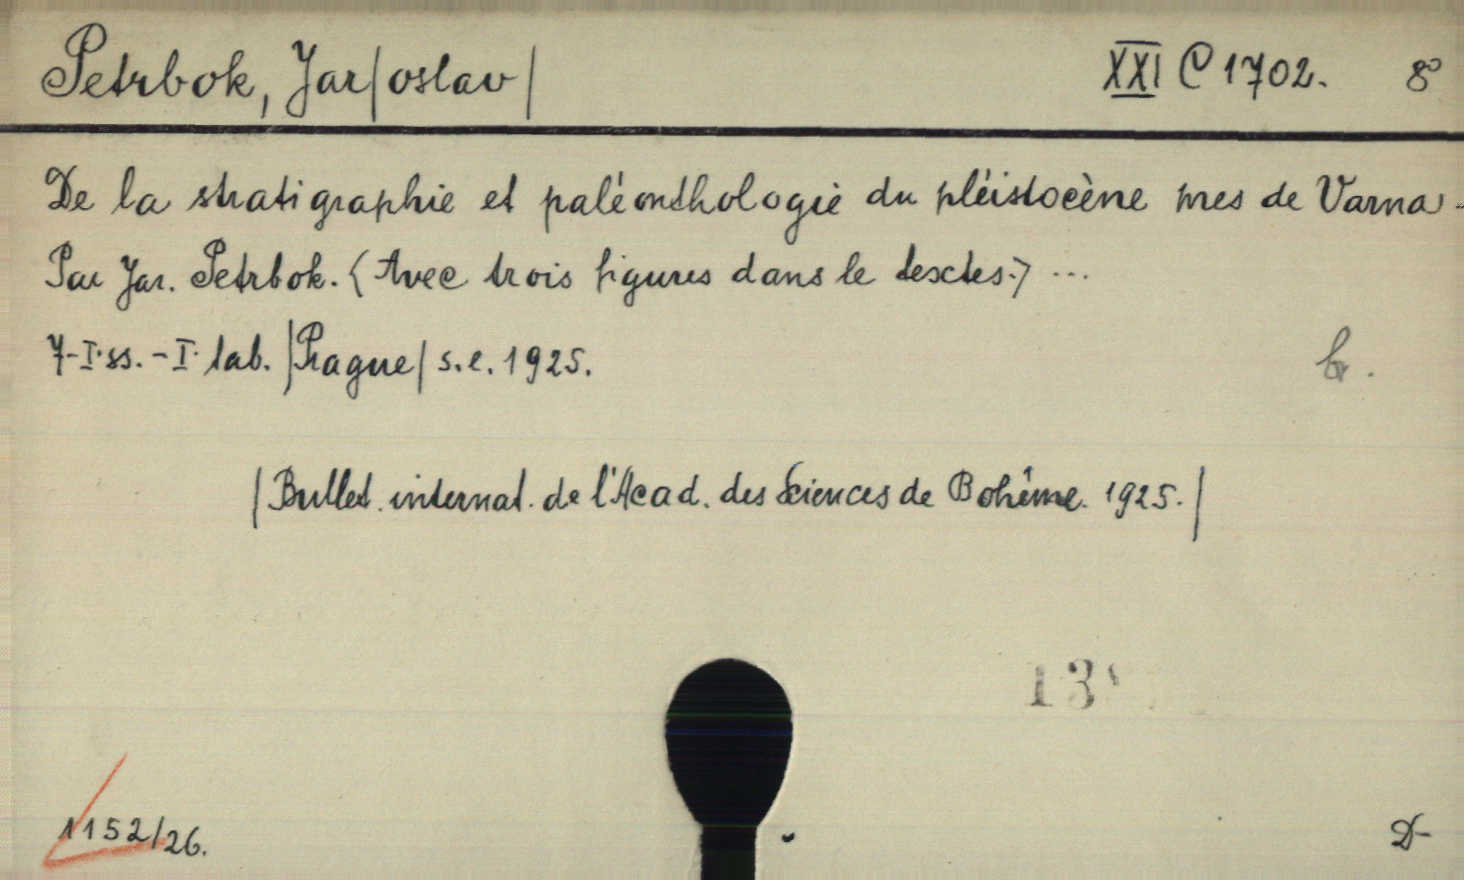 Petrbok, Jar/oslav/ XXI C 1702. 8°
De la stratigraphie et paléonthologie du pléistocène pres de Varna.
Par Jar. Petrbok. (Avec trois figures dans le textes.) ...
7-I.ss. - I. tab. /Prague/ s.e. 1925.
/Bullet. internat. de l'Acad. des Sciences de Bohême. 1925./
1152/26.